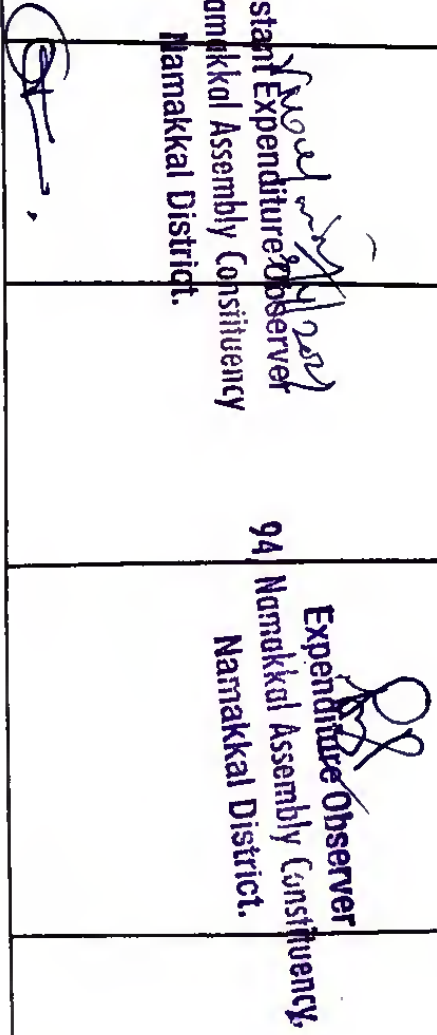 stant Expenditure Observer
amakkal Assembly Constituency
Namakkal District.
Expenditure Observer
94 Namakkal Assembly Constituency,
Namakkal District.